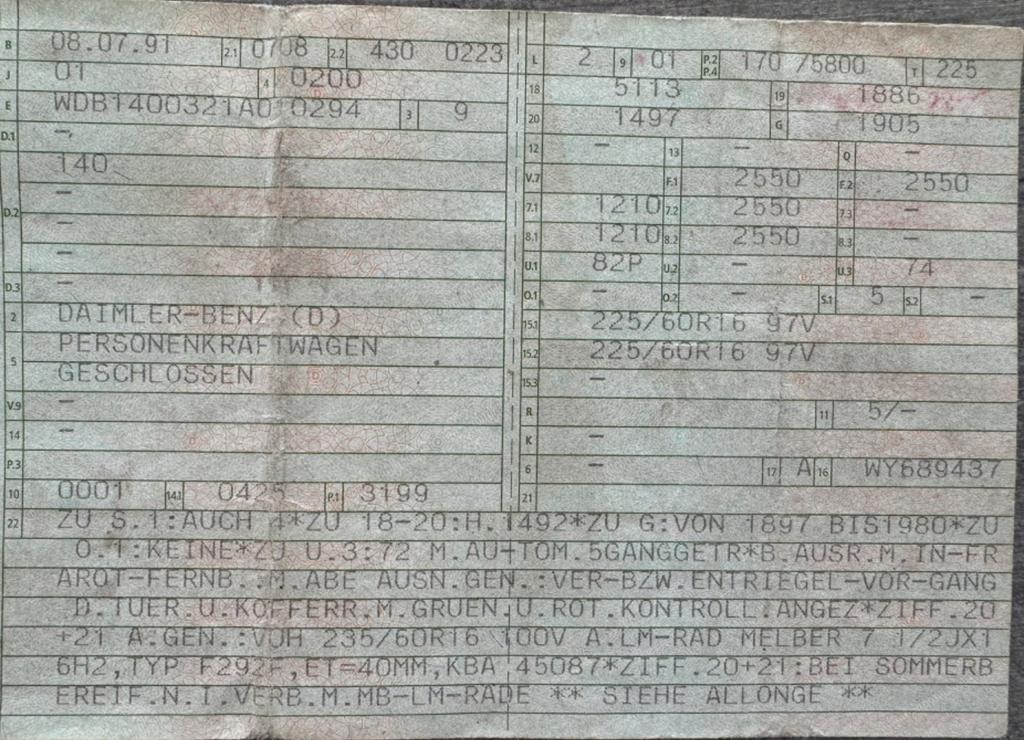 B 08.07.91 2.1 0708 2.2 430 0223
J 01 4 0200
E WDB1400321A010294 3 9
D.1 -
140
-
D.2 -
-
D.3 -
2 DAIMLER-BENZ (D)
PERSONENKRAFTWAGEN
5 GESCHLOSSEN
V.9 -
14 -
P.3
10 0001 14.1 0425 P.1 3199
L 2 9 01 P.2 P.4 170 /5800 T 225
18 5113 19 1886
20 1497 G 1905
12 - 13 - Q -
V.7 F.1 2550 F.2 2550
7.1 1210 7.2 2550 7.3 -
8.1 1210 8.2 2550 8.3 -
U.1 82P U.2 - U.3 74
O.1 - O.2 - S.1 5 S.2 -
15.1 225/60R16 97V
15.2 225/60R16 97V
15.3 -
R 11 5/-
K -
6 - 17 A 16 WY689437
21
22 ZU S.1:AUCH 4*ZU 18-20:H.1492*ZU G:VON 1897 BIS1980*ZU
O.1:KEINE*ZU U.3:72 M.AU-TOM.5GANGGETR*B.AUSR.M.IN-FR
AROT-FERNB.:M.ABE AUSN.GEN.:VER-BZW.ENTRIEGEL-VOR-GANG
D.TUER.U.KOFFERR.M.GRUEN.U.ROT.KONTROLL.ANGEZ*ZIFF.20
+21 A.GEN.:VUH 235/60R16 100V A.LM-RAD MELBER 7 1/2JX1
6H2,TYP F292F,ET=40MM,KBA 45087*ZIFF.20+21:BEI SOMMERB
EREIF.N.I.VERB.M.MB-LM-RADE ** SIEHE ALLONGE **